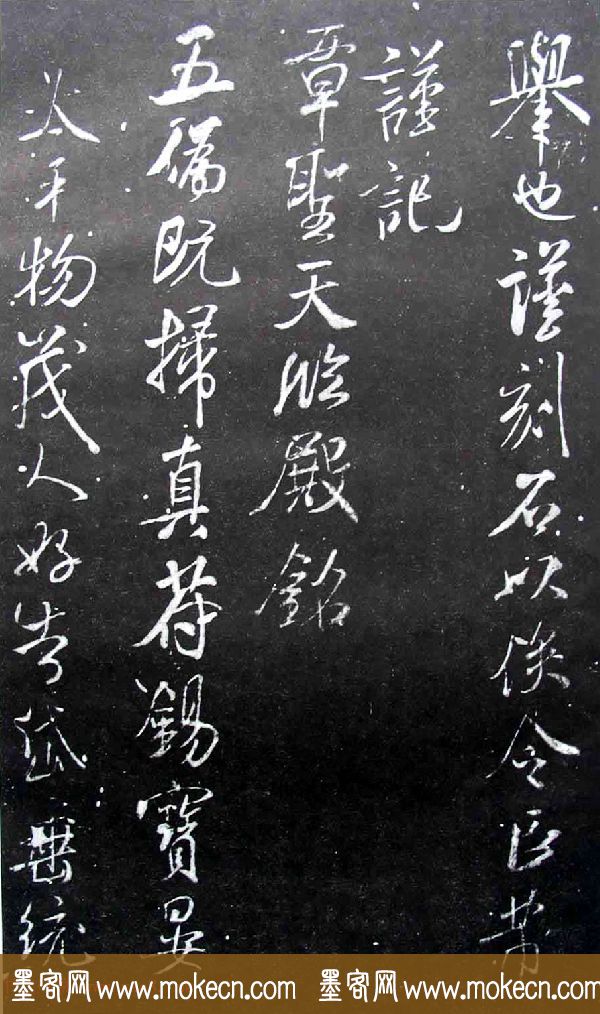 舉也謹刻石以俟令臣芾
謹記
章聖天臨殿銘
五僞既掃真符錫寶
太平物茂人好告岱垂統
墨客网 www.mokecn.com 墨客网 www.mokecn.com